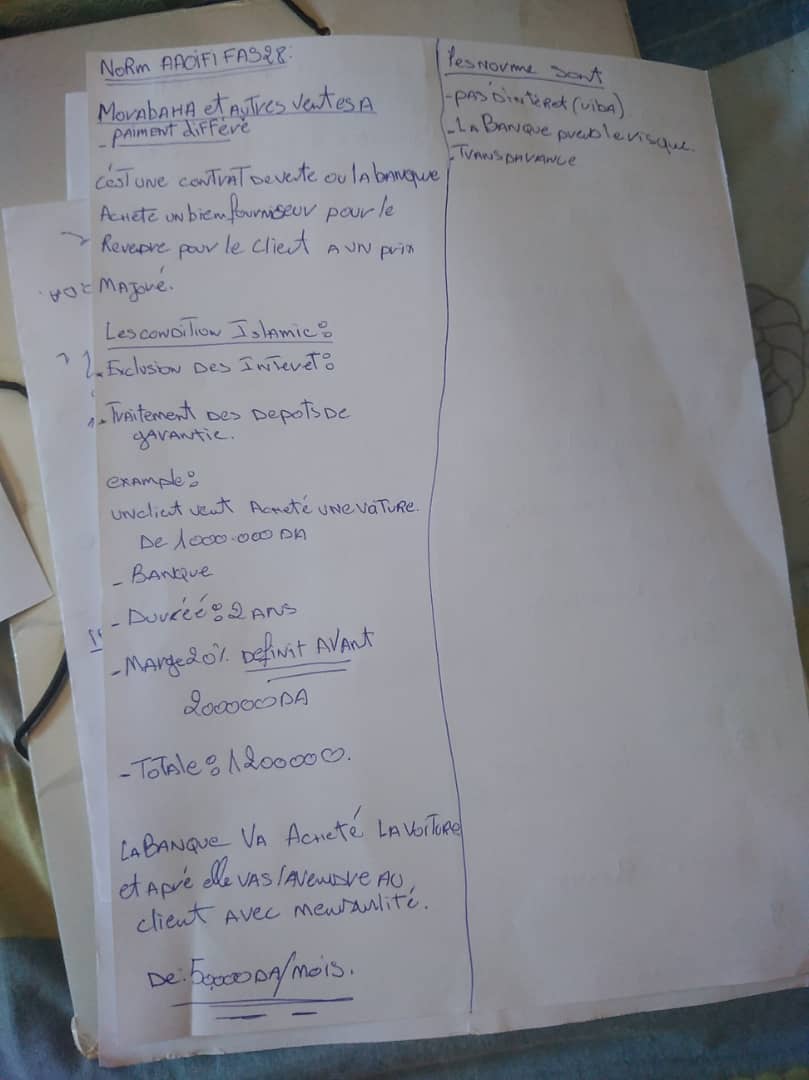 NORM AAOIFI FAS28:
MORABAHA et AUTRES VENTES A
- PAIMENT différé
C'EST UNE CONTRAT DE VENTE OU LA banque
ACHETE UN bien fourniseur pour le
Revendre pour le Client A UN prix
MAJoré.
Les CONDITION ISLAMIC:
Exclusion DES INTERET:
TRAITEMENT DES DEPOTS DE
gARANTIE.
EXAMPLE:
UN client veut ACHETÉ UNE VATURE.
DE 1000.000 DA
- BANQUE
- Duréé: 2 ANS
- MARge 20% DEFINIT AVANT
200000 DA
- TOTALE: 1200000.
LA BANQUE VA ACHETÉ LA VOITURE
et APRÉ elle VAS LAVENDRE AU
client AVEC MENSUALITÉ.
DE: 50000 DA/MOIS.
les NORME SONT
- PAS D'INTÉRET (riba)
- LA BANQUE risque.